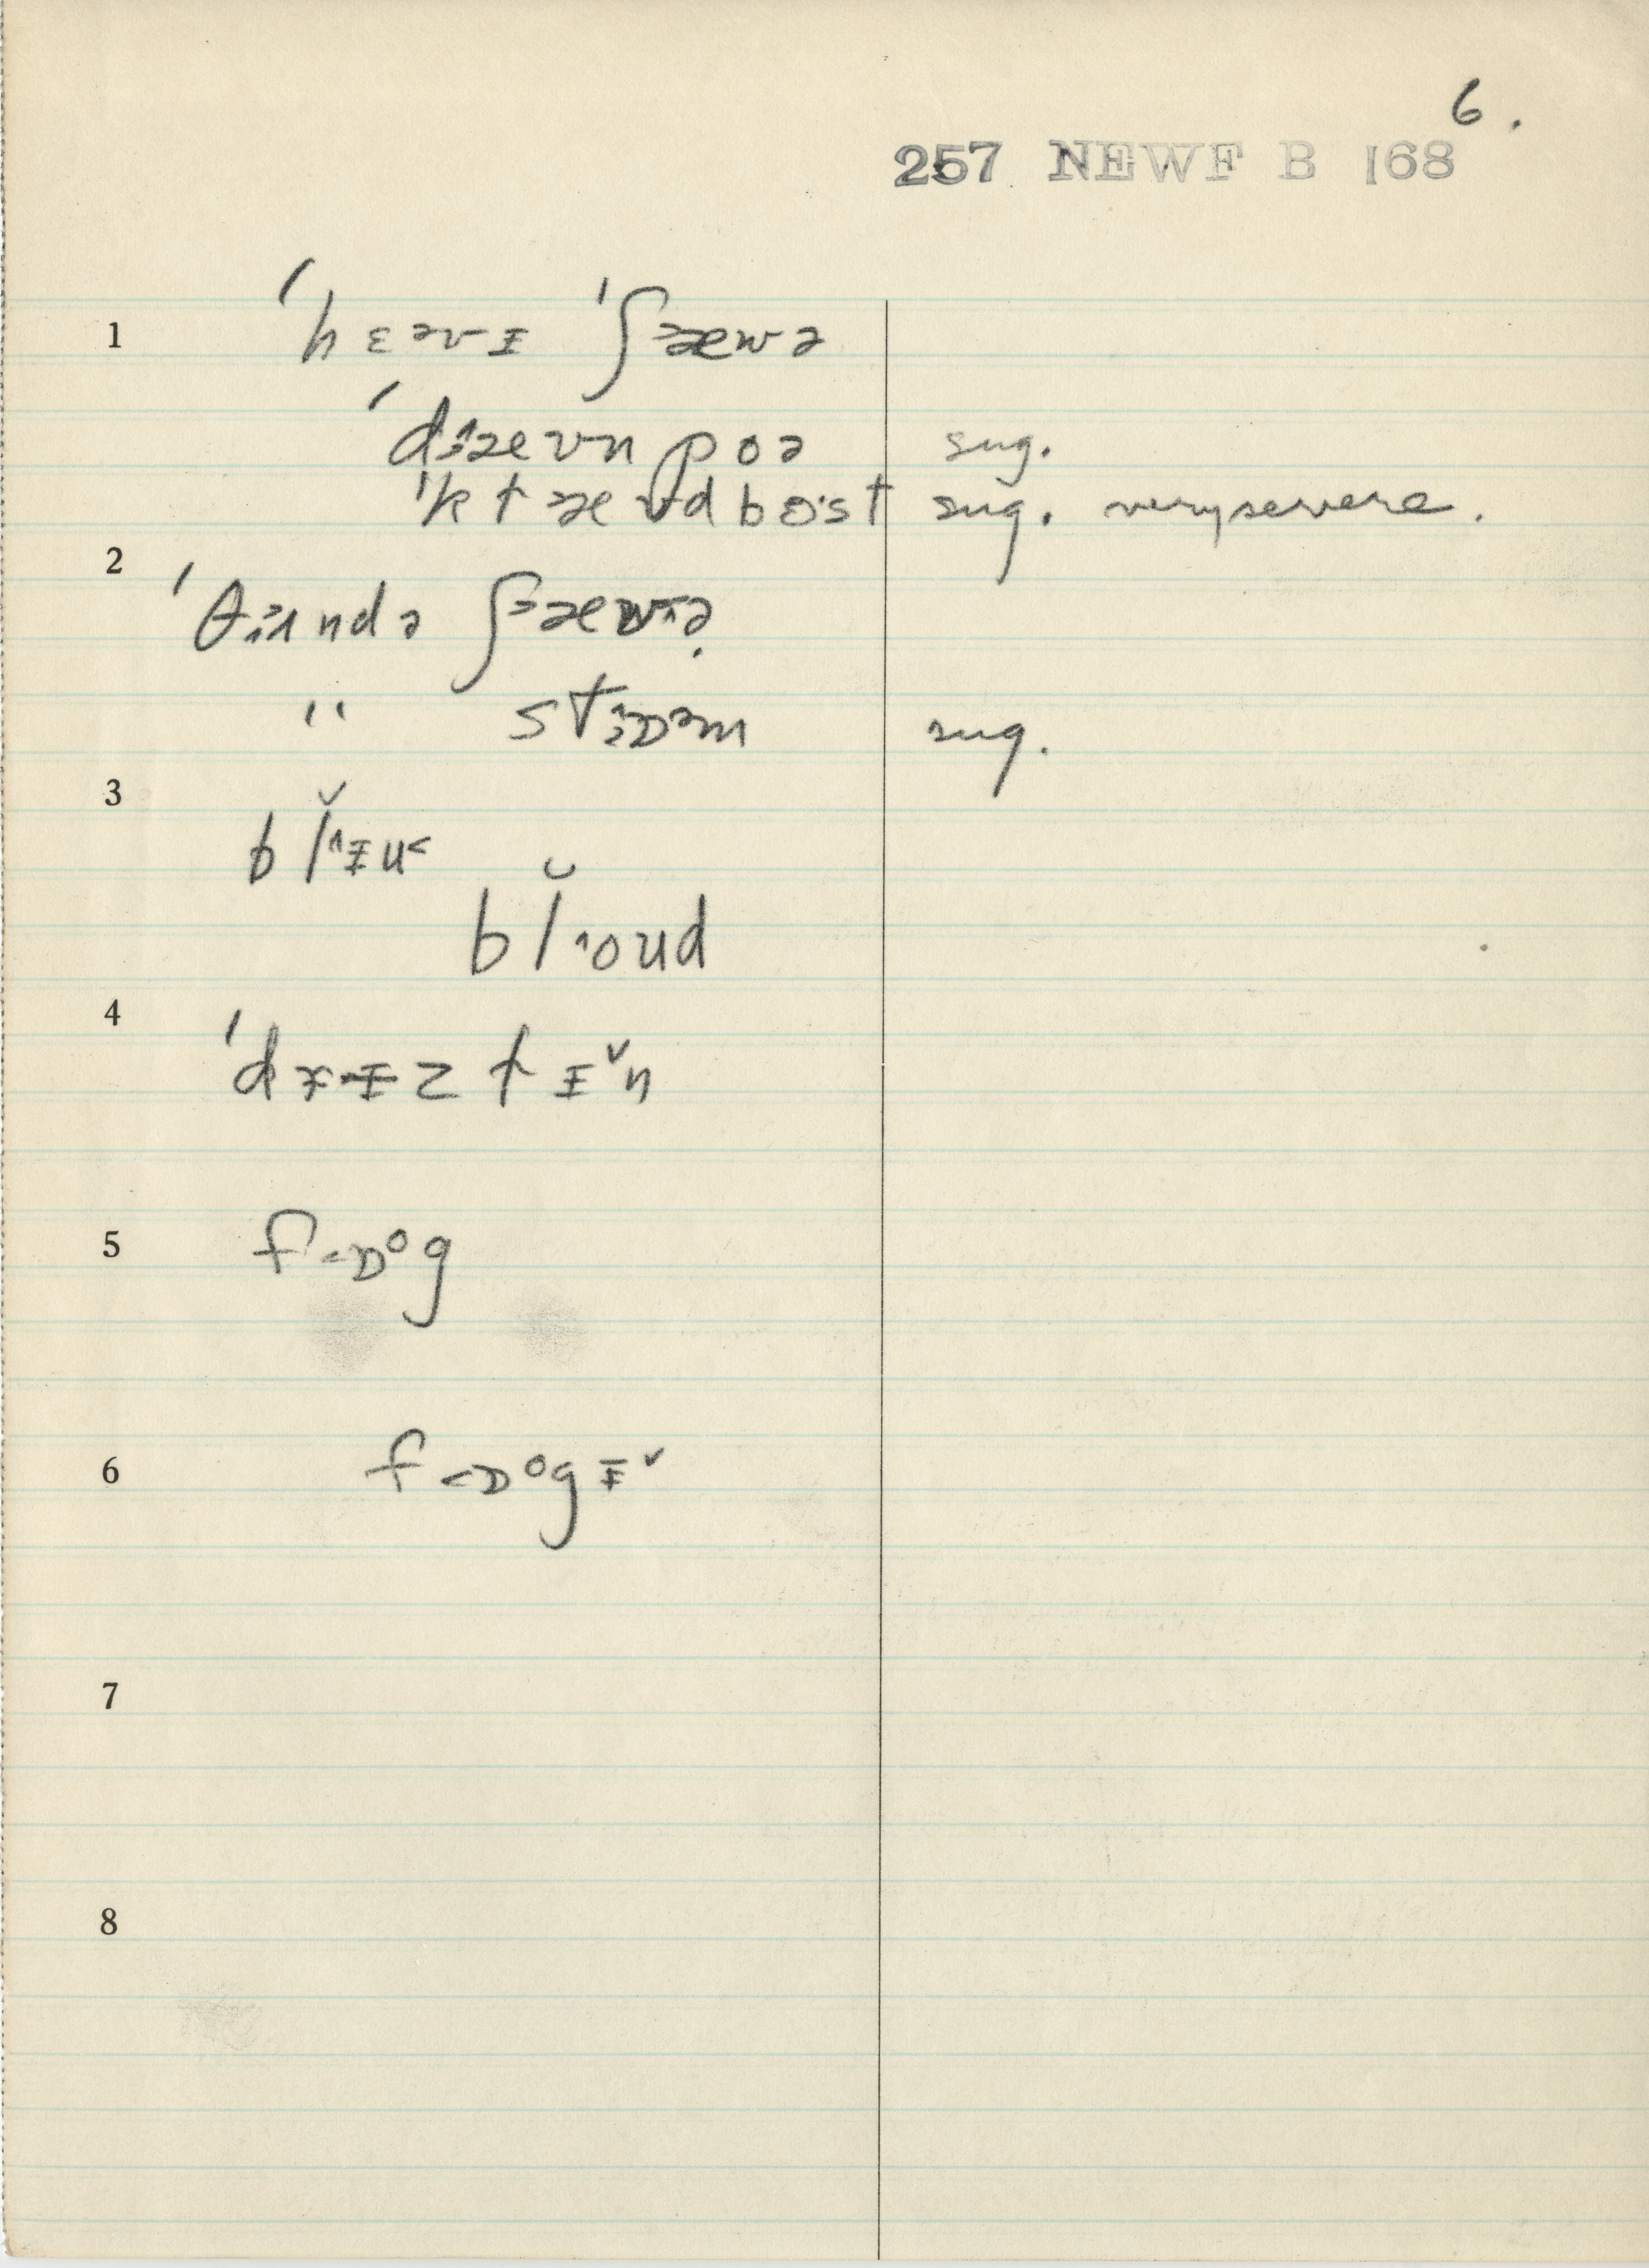 6.
257 NEWF B 168
1 ˈhɛəvɪ ˈʃæwə
ˈdæʊnpoə sug.
ˈklæʊdbo·st sug. very severe.
2 ˈθʌndə ʃæwə
" stɒəm sug.
3 blɪu˂
bloud
4 ˈdɪɪzlɪ˅n
5 f˂ɒᵒg
6 f˂ɒᵒgɪ˅
7
8